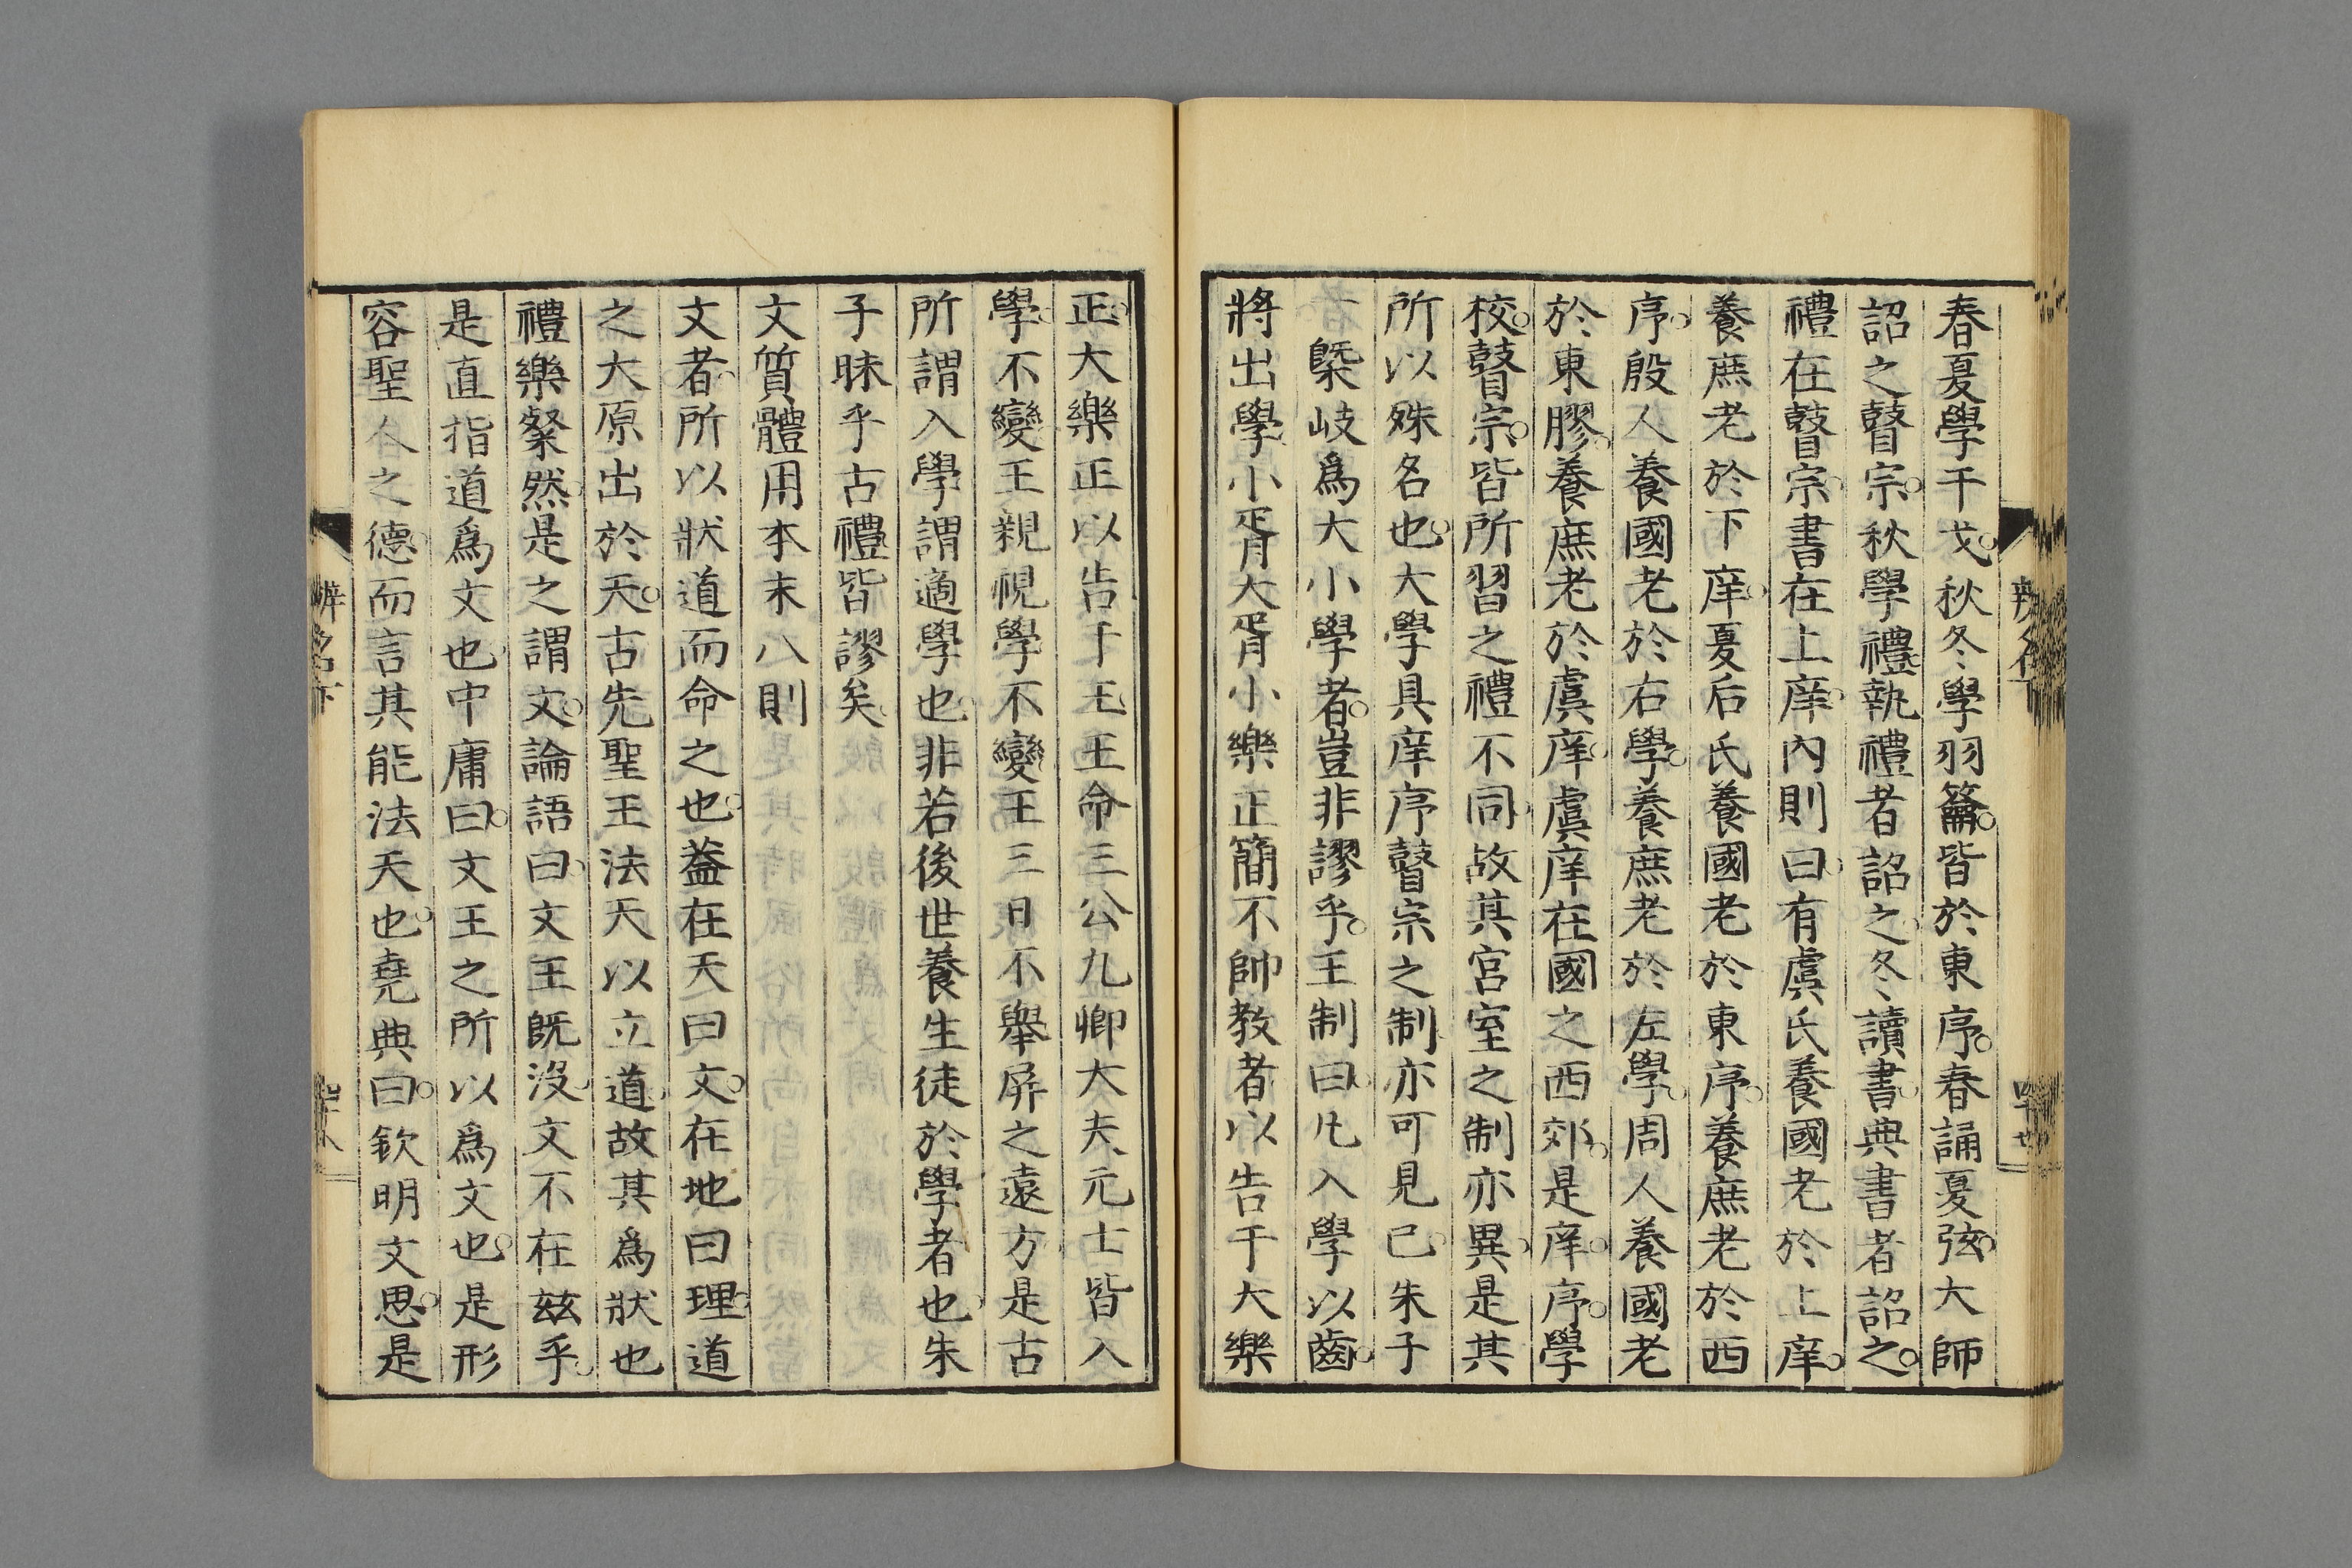 春夏學干戈。秋冬學羽籥。皆於東序。春誦夏弦。大師
詔之瞽宗。秋學禮執禮者詔之。冬讀書典書者詔之。
禮在瞽宗。書在上庠。內則曰。有虞氏養國老於上庠。
養庶老於下庠。夏后氏養國老於東序。養庶老於西
序。殷人養國老於右學。養庶老於左學。周人養國老
於東膠。養庶老於虞庠。虞庠在國之西郊。是庠。序。學
校。瞽宗。皆所習之禮不同。故其宮室之制亦異。是其
所以殊名也。大學具庠序瞽宗之制。亦可見已。朱子
槩岐爲大小學者。豈非謬乎。王制曰。凡入學以齒。
將出學。小胥大胥小樂正簡不帥教者。以告于大樂
正。大樂正以告于王。王命三公九卿大夫元士皆入
學。不變。王親視學。不變。王三日不舉。屏之遠方。是古
所謂入學謂適學也。非若後世養生徒於學者也。朱
子昧乎古禮。皆謬矣。
文質體用本末八則
文者。所以狀道而命之也。葢在天曰文。在地曰理。道
之大原出於天。古先聖王法天以立道。故其爲狀也
禮樂粲然。是之謂文。論語曰。文王既沒。文不在茲乎。
是直指道爲文也。中庸曰。文王之所以爲文也。是形
容聖人之德而言其能法天也。堯典曰。欽明文思。是
辨名下
辨名下